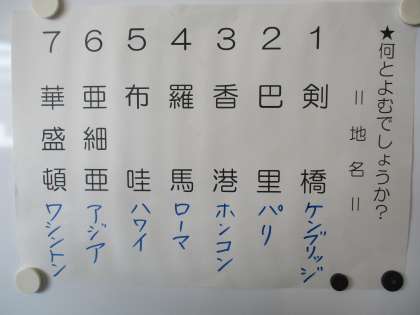 ★何とよむでしょうか?
＝地名＝
1 剣橋 ケンブリッジ
2 巴里 パリ
3 香港 ホンコン
4 羅馬 ローマ
5 布哇 ハワイ
6 亜細亜 アジア
7 華盛頓 ワシントン